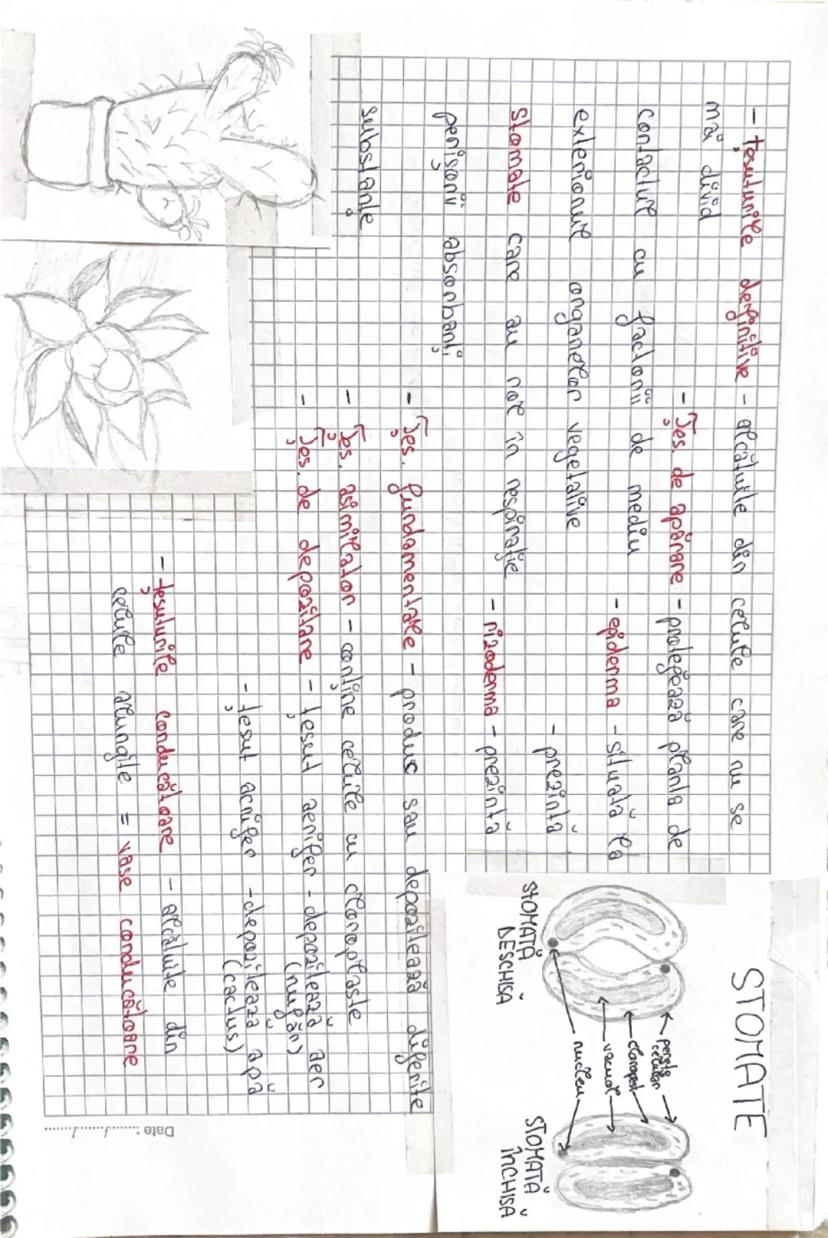 - țesuturile definitive - alcătuite din celule care nu se
mai divid
- Țes. de apărare - protejează planta de
contactul cu factorii de mediu
- epiderma - situată la
exteriorul organelor vegetative
- prezintă
stomate care au rol în respirație
- rizoderma - prezintă
perișorii absorbanți
- Țes. fundamentale - produc sau depozitează diferite
substanțe
- Țes. asimilator - conține celule cu cloroplaste
- Țes. de depozitare - țesut aerifer - depozitează aer
(nufăr)
- țesut acvifer - depozitează apă
(cactus)
- țesuturile conducătoare - alcătuite din
celule alungite = vase conducătoare
STOMATE
perete
celular
cloroplast
vacuolă
nucleu
STOMATĂ
DESCHISĂ
STOMATĂ
ÎNCHISĂ
Date: ....../....../......